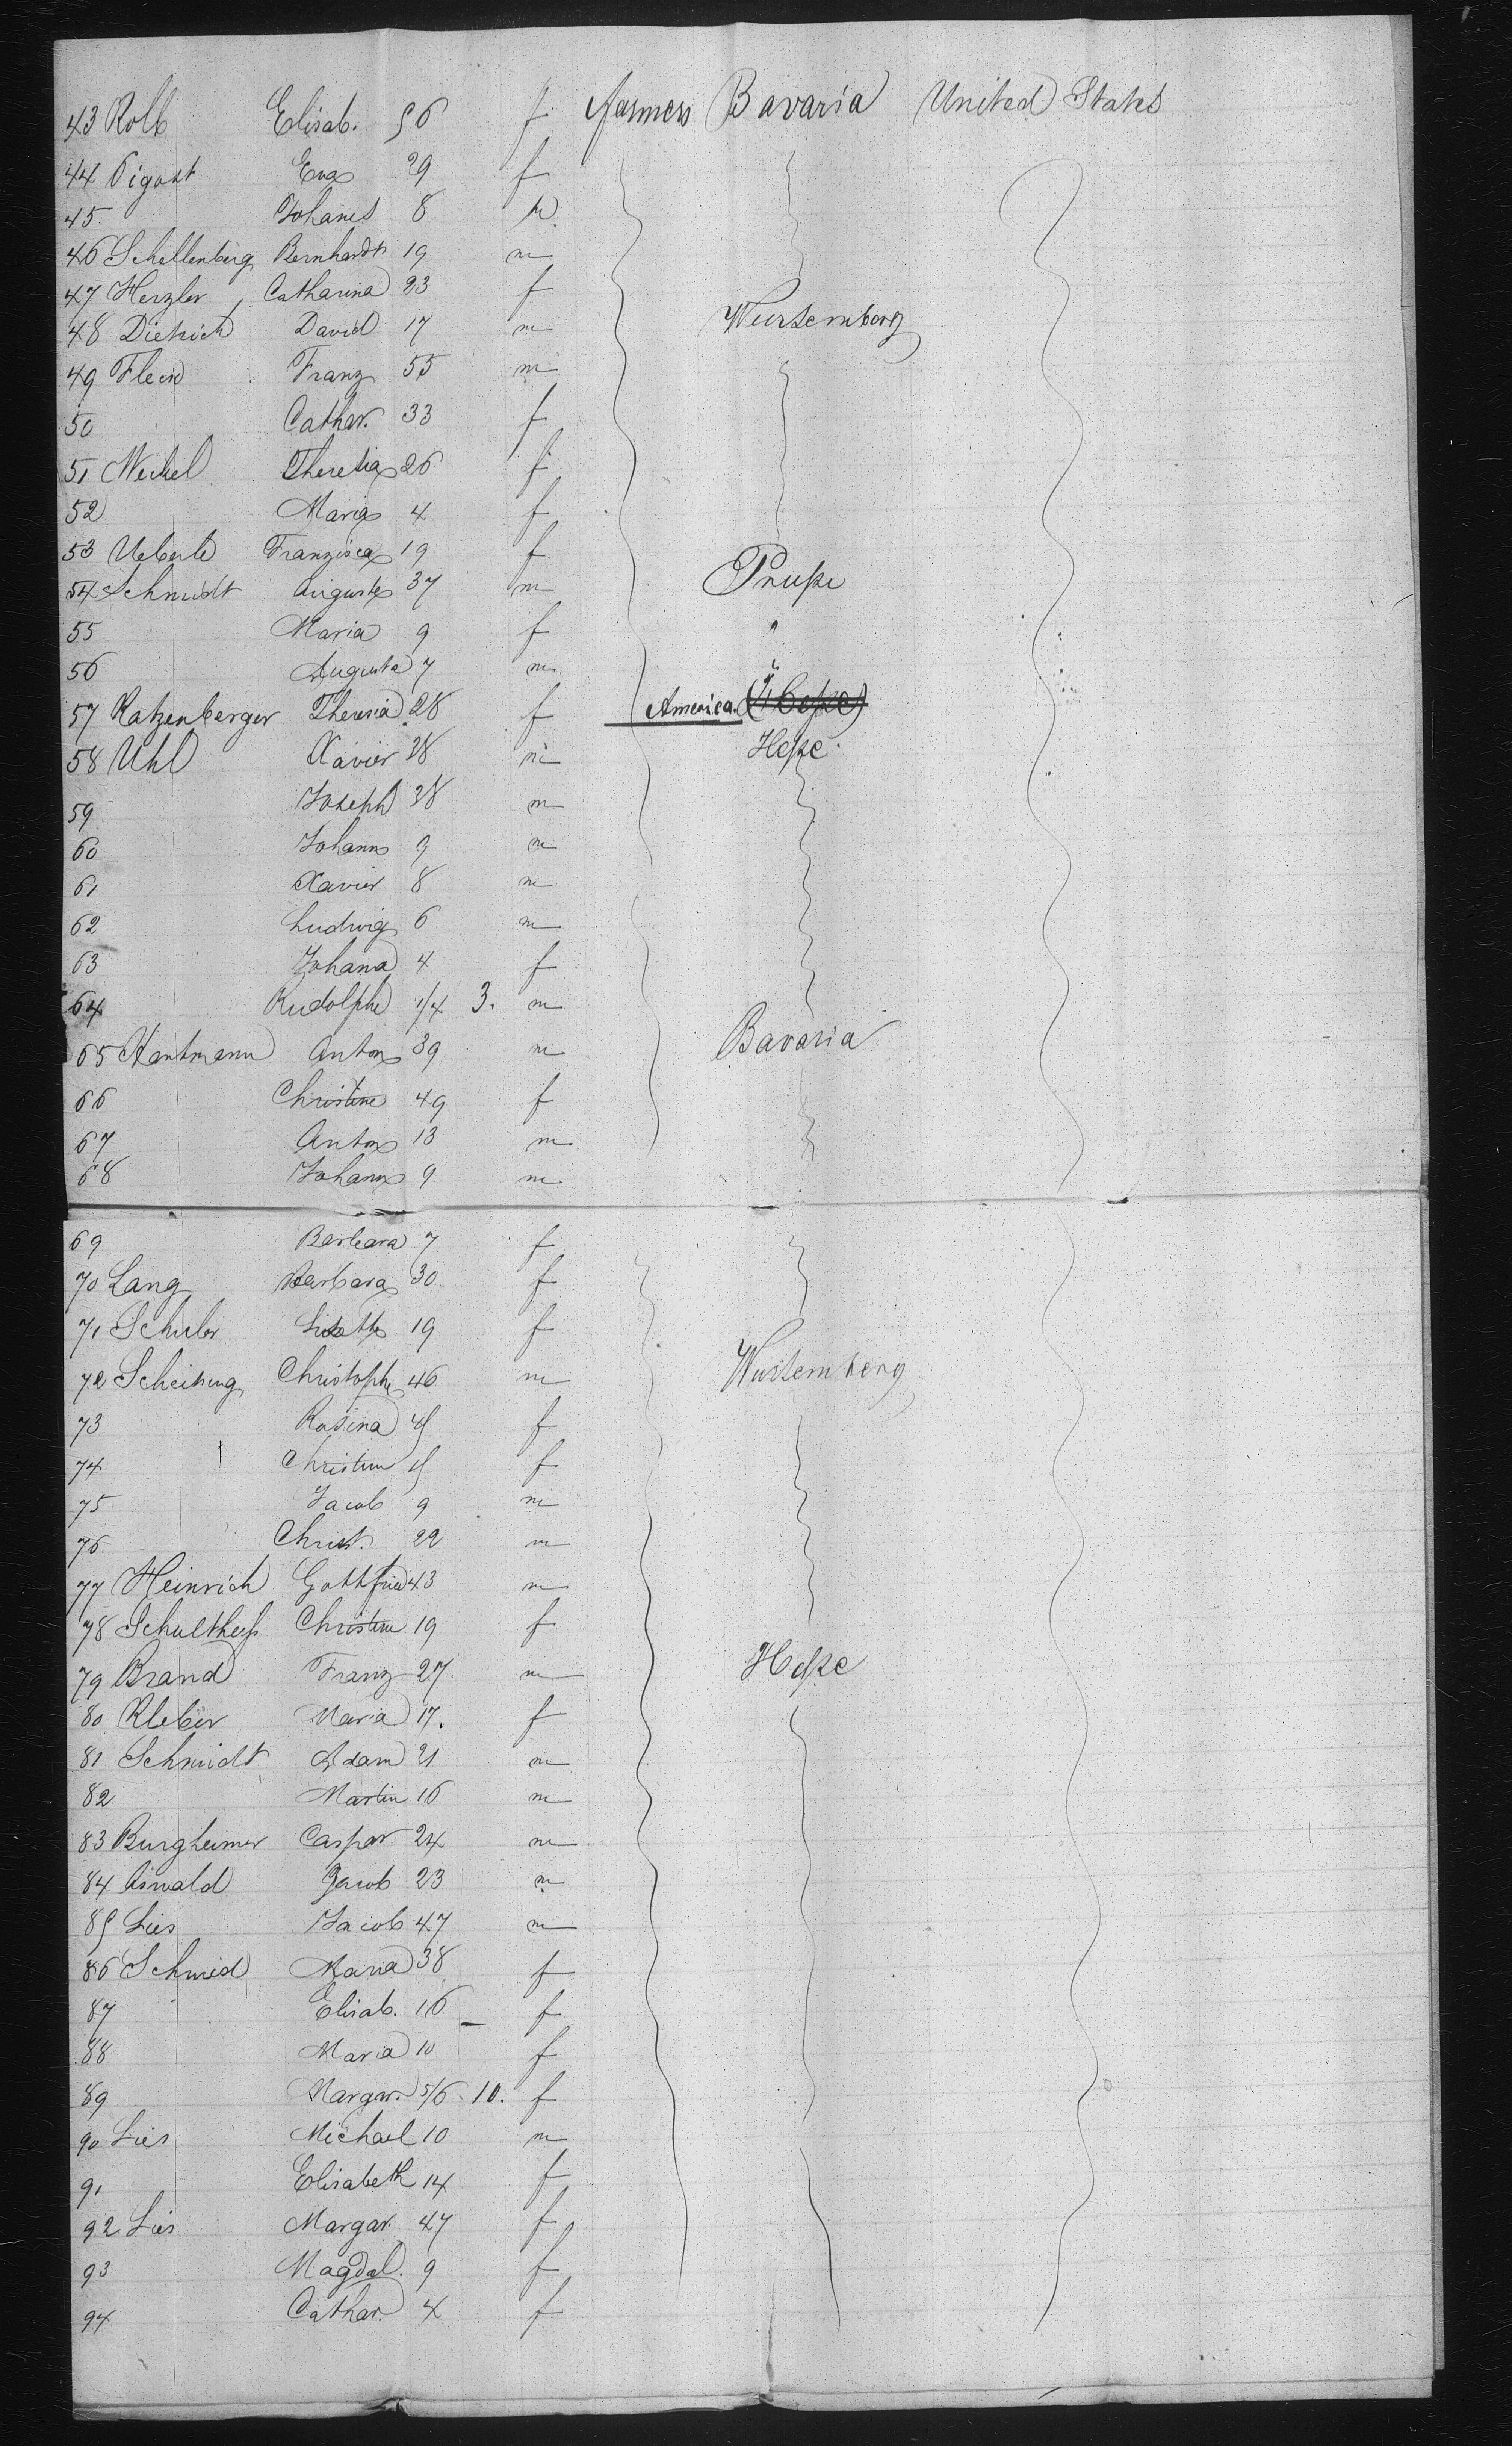 43 Kolb Elisab. 56 f farmers Bavaria United States
44 Pigost Eva 29 f
45 Johanes 8 m
46 Schellenberg Bernhardt 19 m
47 Herzler Catharina 23 f
48 Dietrich David 17 m Wurtemberg
49 Flein Franz 55 m
50 Cathar. 33 f
51 Weikel Theresia 26 f
52 Maria 4 f
53 Ueberle Franzisca 19 f
54 Schmidt Auguste 37 m Prusse
55 Maria 9 f "
56 Augusta 7 m "
57 Katzenberger Theresia 28 f America. (Hesse)
58 Uhl Xavier 38 m Hesse.
59 Joseph 38 m
60 Johann 9 m
61 Xavier 8 m
62 Ludwig 6 m
63 Johana 4 f
64 Rudolphe 1/4 3. m
65 Hartmann Anton 39 m Bavaria
66 Christine 49 f
67 Anton 13 m
68 Johann 9 m
69 Barbara 7 f
70 Lang Barbara 30 f
71 Schuler Lisette 19 f
72 Christophe 46 m Wurtemberg
73 Rosina 45 f
74 Christine f
75 Jacob 9 m
76 Christ. 22 m
77 Heinrich Gottfried 43 m
78 Schultheiss Christine 19 f
79 Brand Franz 27 m Hesse
80 Kleber Maria 17. f
81 Schmidt Adam 21 m
82 Martin 16 m
83 Burgheimer Caspar 24 m
84 Oswald Jacob 23 m
85 Lies Jacob 47 m
86 Schmid Maria 38 f
87 Elisab. 16 f
88 Maria 10 f
89 Margar. 5/6 10. f
90 Lies Michael 10 m
91 Elisabeth 14 f
92 Lies Margar. 47 f
93 Magdal. 9 f
94 Cathar. 4 f